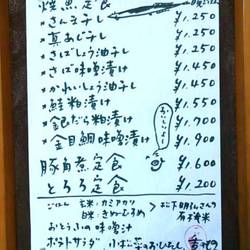 焼魚定食
*さんま干し ¥1,250
*真あじ干し ¥1,250
*さばしょう油干し ¥1,250
*さば味噌漬け ¥1,450
*かれいしょう油干し ¥1,450
*鮭粕漬け ¥1,550
*銀だら粕漬け ¥1,700
*金目鯛味噌漬け ¥1,900
豚角煮定食 ¥1,600
とろろ定食 ¥1,200
ごはん 玄米・カミアカリ
白米・きぬむすめ
松下明弘さんの
有機米
おとうふの味噌汁
ポテトサラダ 小松菜のおひたし